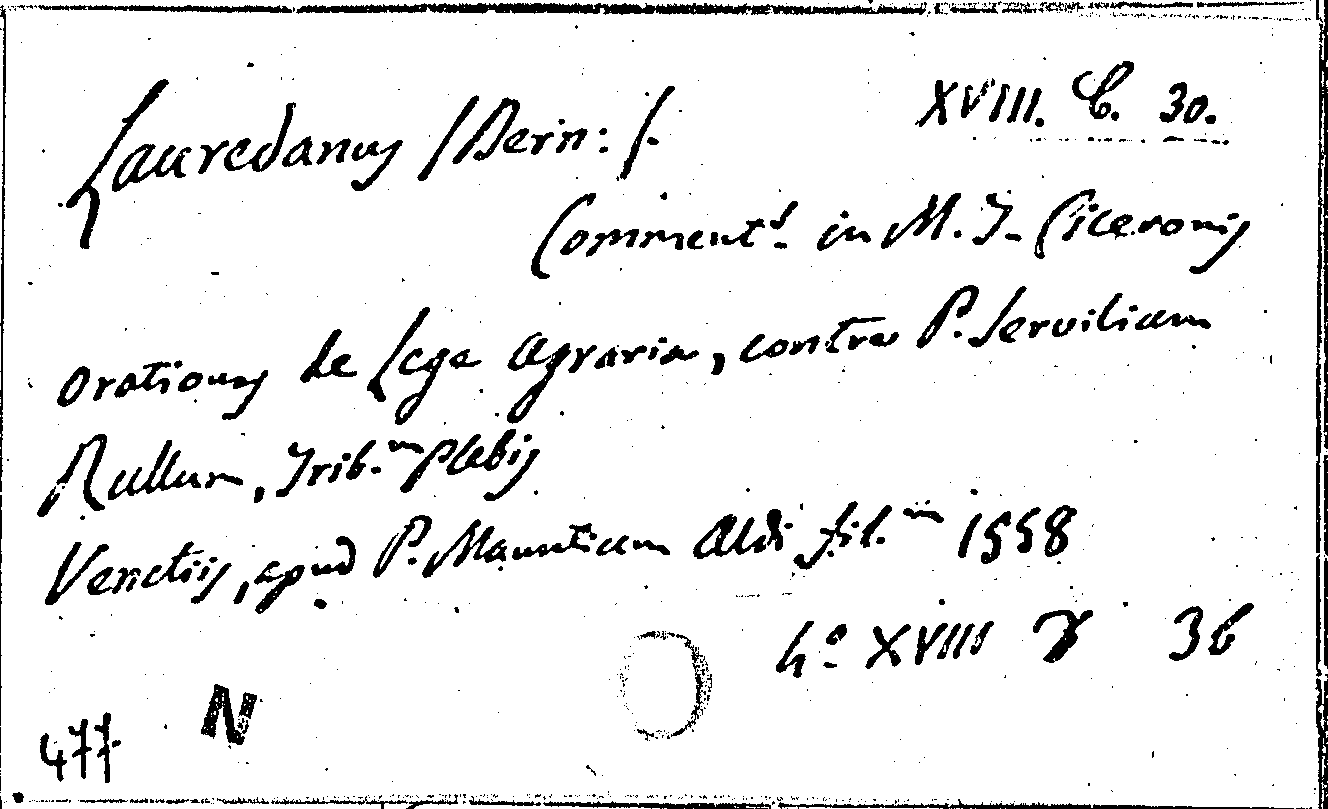 XVIII. C. 30.
Lauredanus /Bern:/.
Comment.s in M. T. Ciceronis
Orationes de Lege Agraria, contra P. Servilium
Rullum, Trib.m Plebis
Venetiis, apud P. Manutium Aldi fil.m 1558
4o XVIII 36
477 N